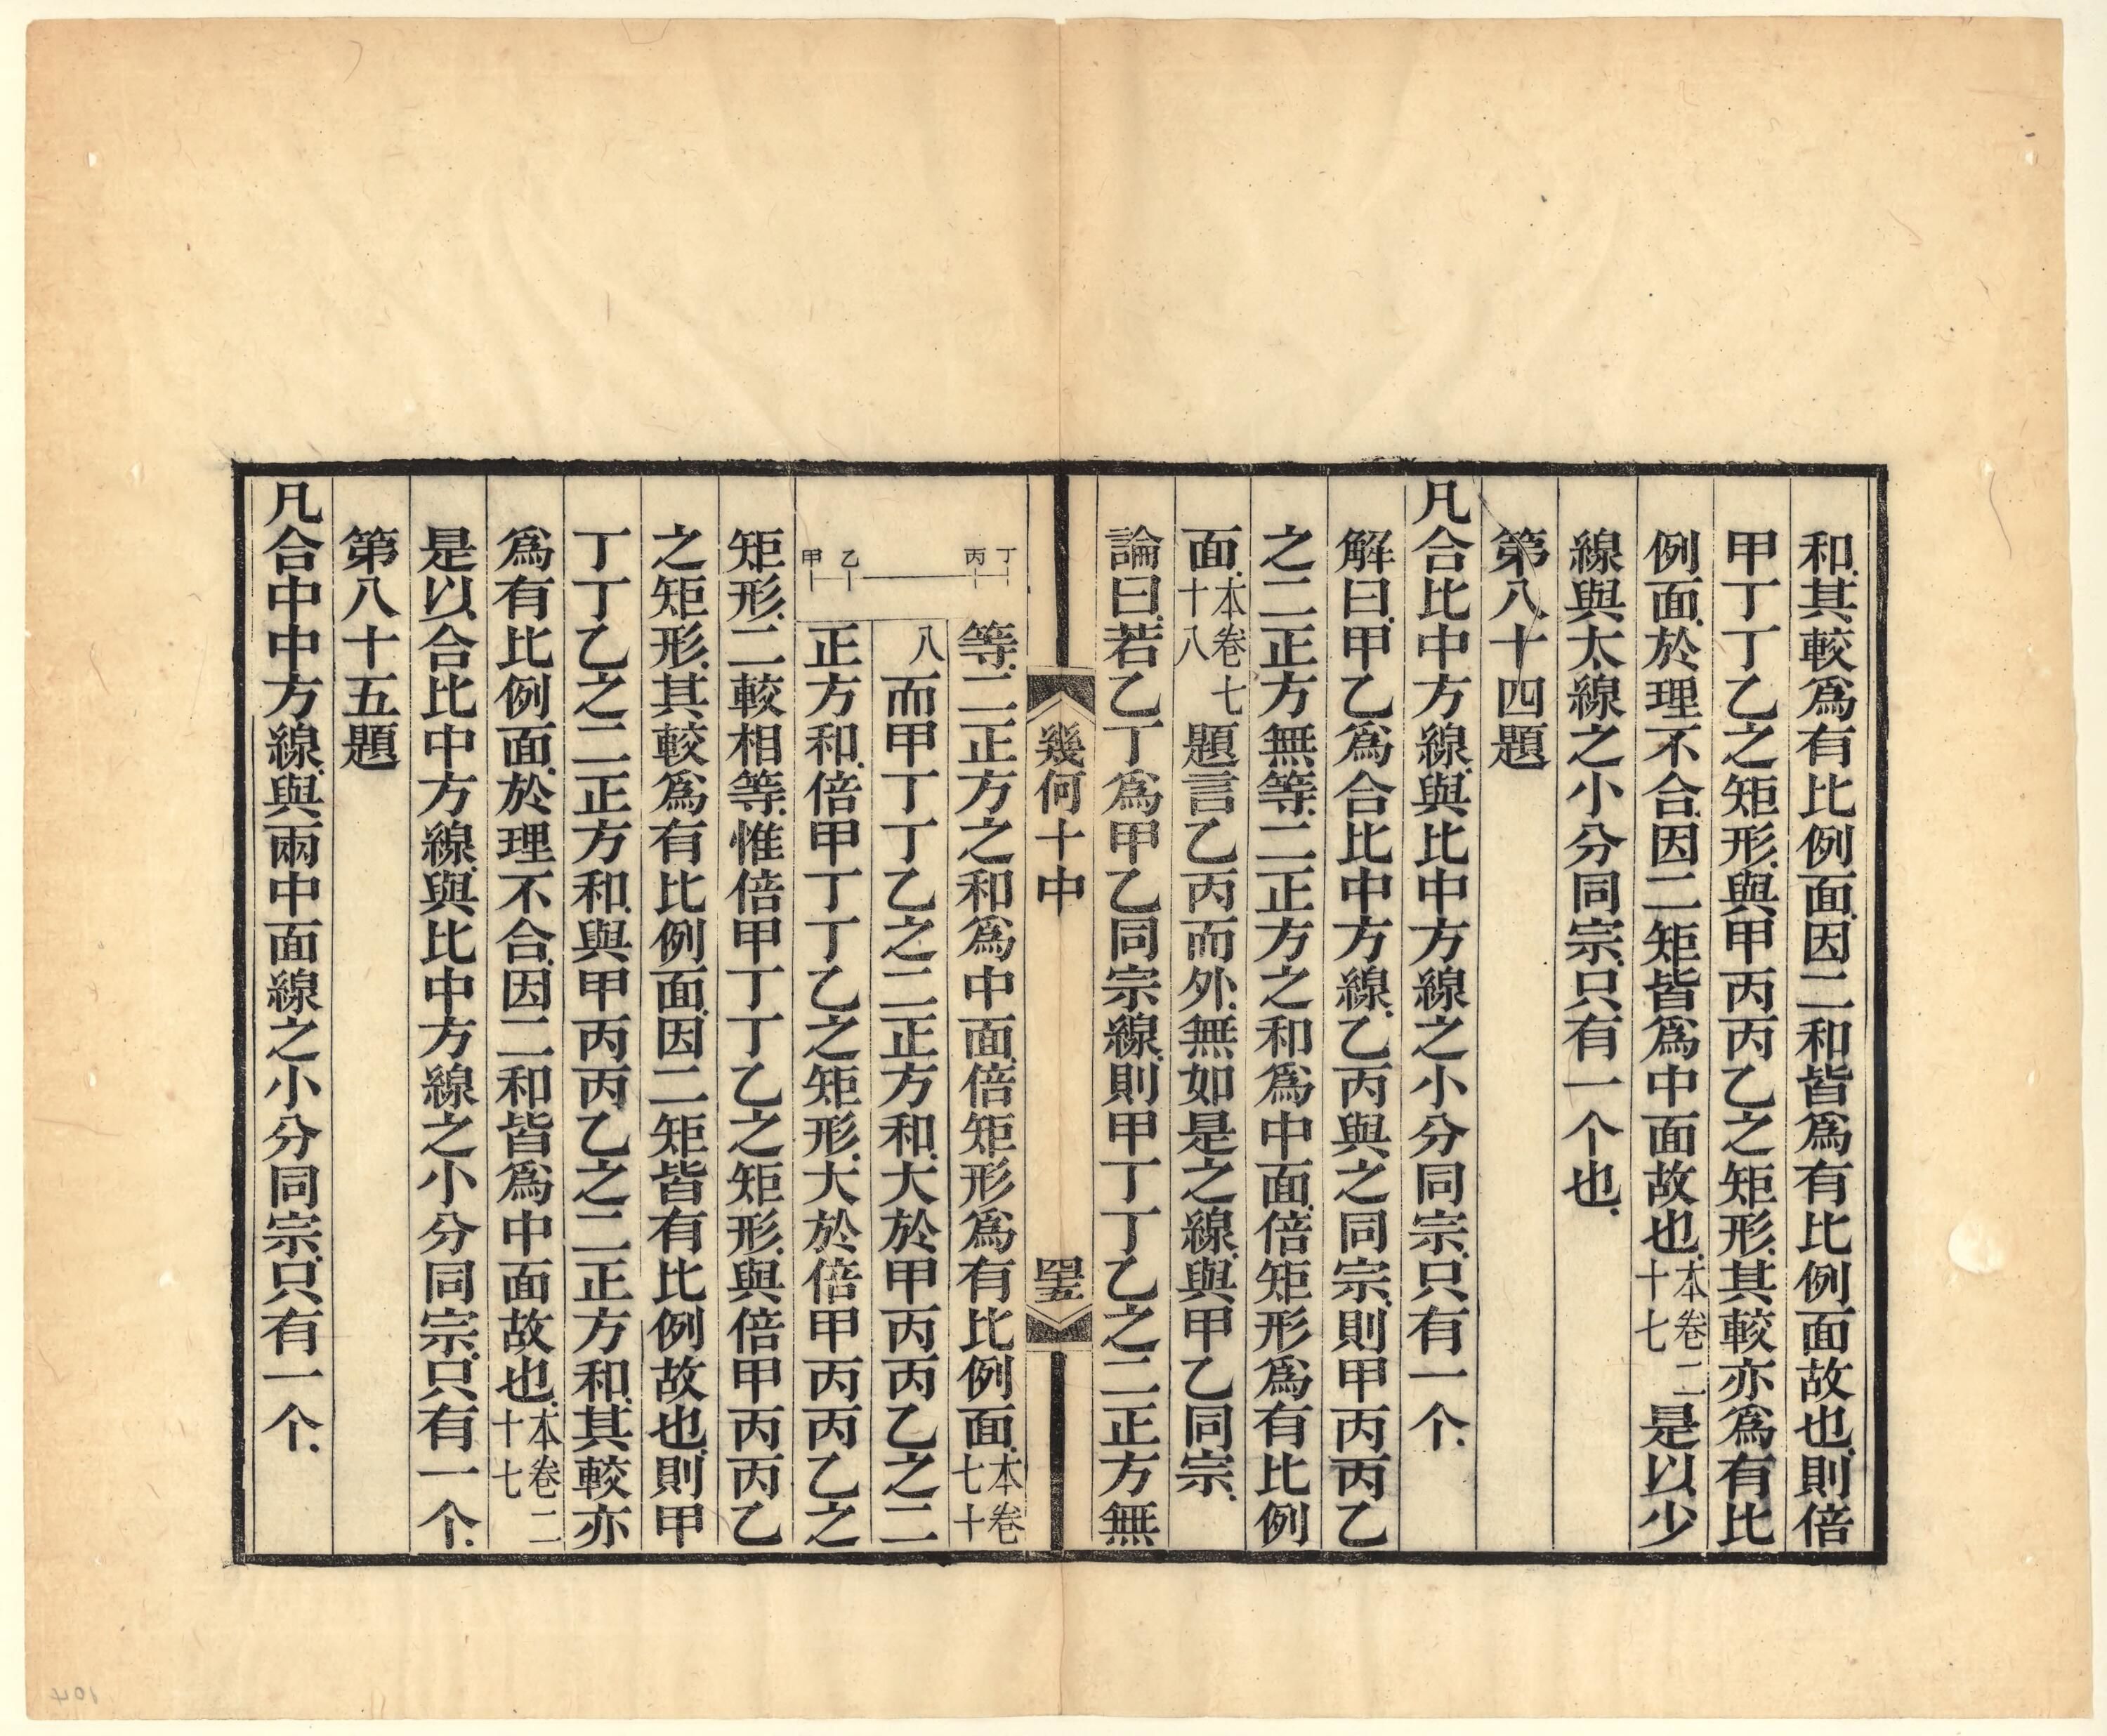 和.其較爲有比例面.因二和皆爲有比例面故也.則倍
甲丁丁乙之矩形.與甲丙丙乙之矩形.其較亦爲有比
例面.於理不合.因二矩皆爲中面故也.本卷二十七是以少
線與太線之小分同宗.只有一个也.
第八十四題
凡合比中方線.與比中方線之小分同宗.只有一个.
解曰.甲乙爲合比中方線.乙丙與之同宗.則甲丙丙乙
之二正方無等.二正方之和爲中面.倍矩形爲有比例
面.本卷七十八題言乙丙而外.無如是之線.與甲乙同宗.
論曰.若乙丁爲甲乙同宗線.則甲丁丁乙之二正方無
幾何十中
四五
丁丙乙甲
等.二正方之和爲中面.倍矩形爲有比例面.本卷七十
八而甲丁丁乙之二正方和.大於甲丙丙乙之二
正方和.倍甲丁丁乙之矩形.大於倍甲丙丙乙之
矩形.二較相等.惟倍甲丁丁乙之矩形.與倍甲丙丙乙
之矩形.其較爲有比例面.因二矩皆有比例故也.則甲
丁丁乙之二正方和.與甲丙丙乙之二正方和.其較亦
爲有比例面.於理不合.因二和皆爲中面故也.本卷二十七
是以合比中方線.與比中方線之小分同宗.只有一个.
第八十五題
凡合中中方線.與兩中面線之小分同宗.只有一个.